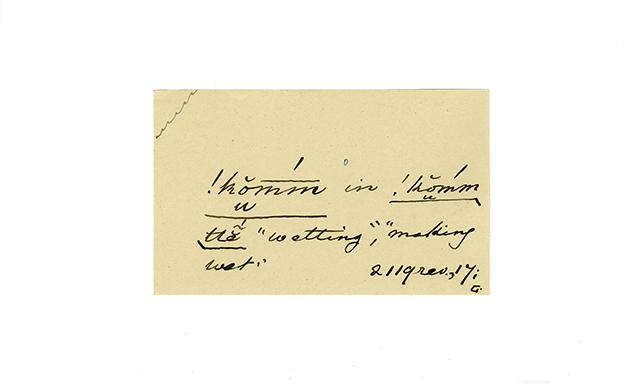 !kŏmḿ in !kŏmḿ
ttẽ́ "wetting", "making
wet."
2119 rev., 17;
G.